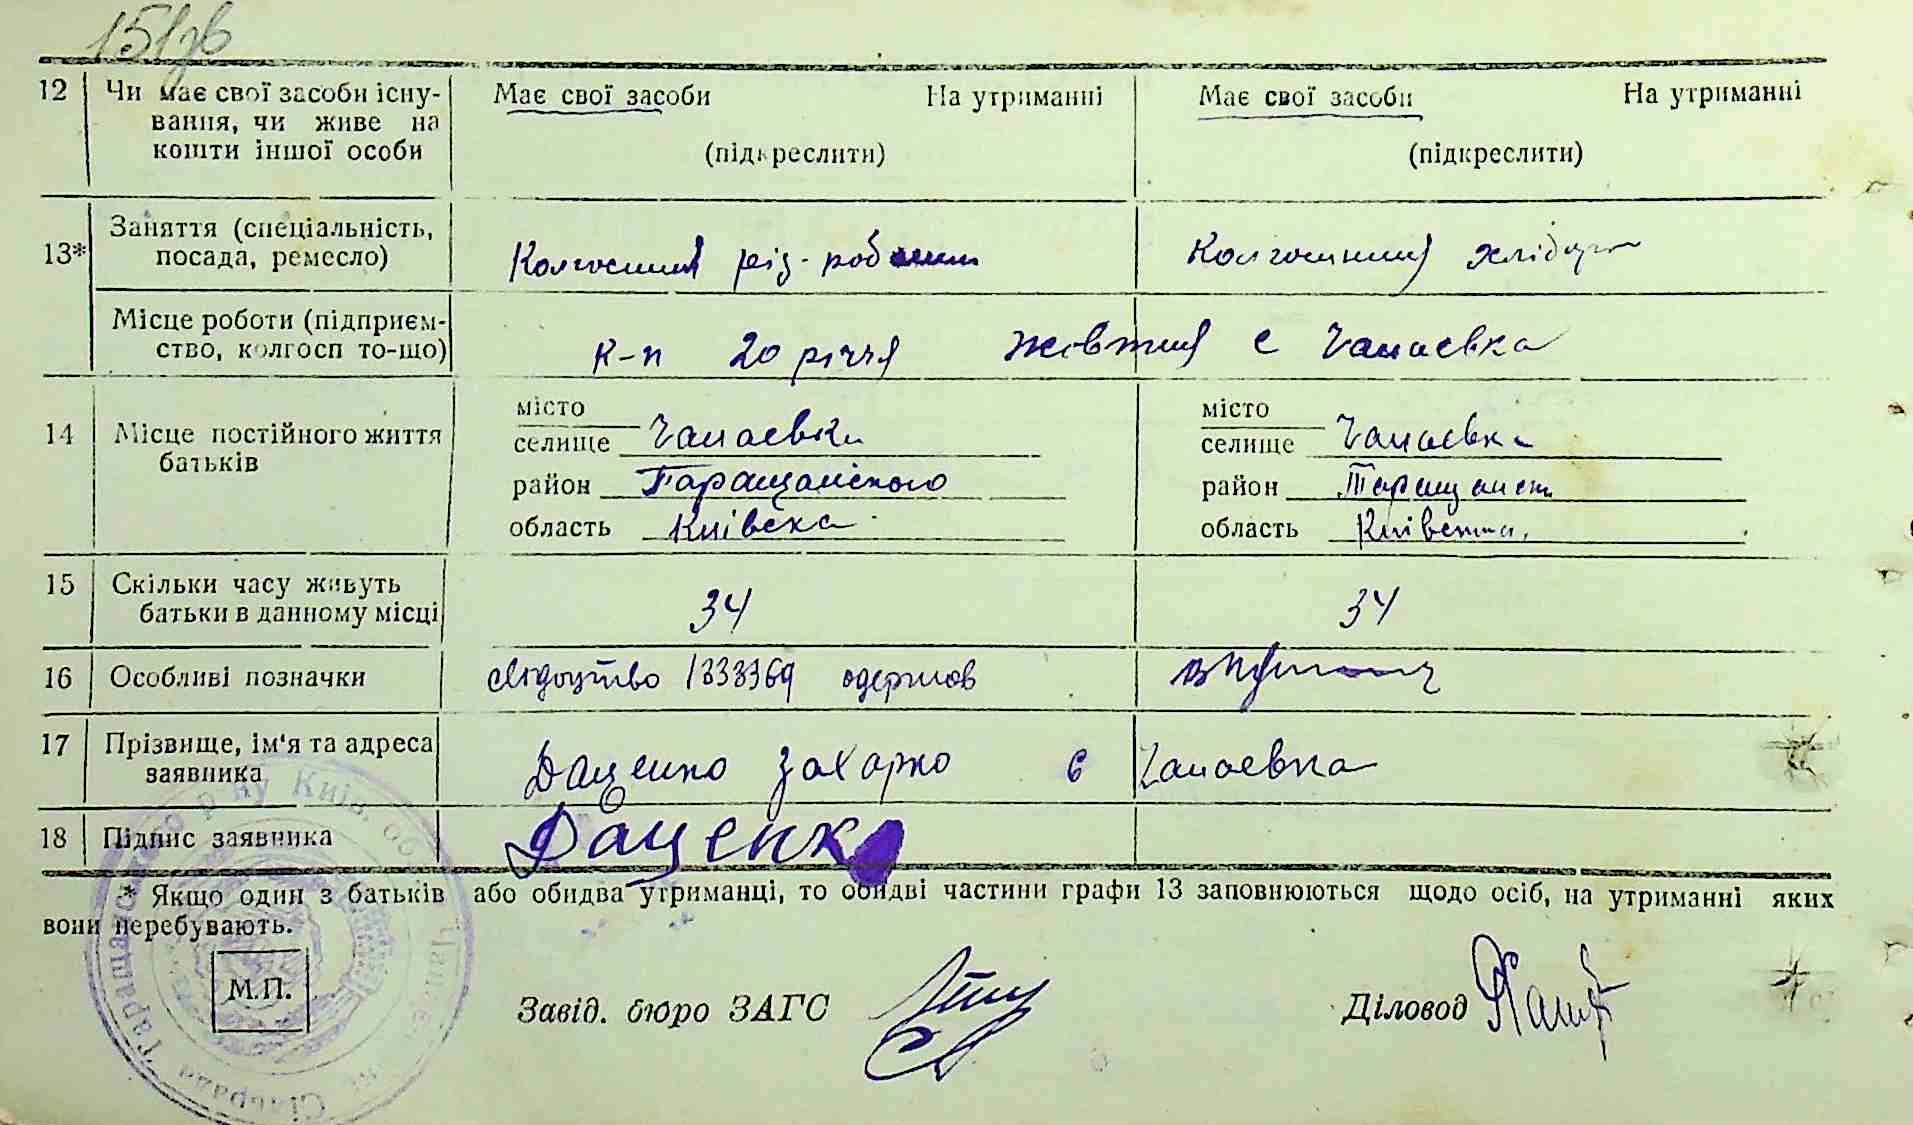 151зв
12 Чи має свої засоби існу- Має свої засоби На утриманні Має свої засоби На утриманні
вання, чи живе на
кошти іншої особи (підкреслити) (підкреслити)
13* Заняття (спеціальність,
посада, ремесло) Колгоспник різ-робочий Колгоспниця
Місце роботи (підприєм-
ство, колгосп то-що) к-п 20 річчя Жовтня с Чапаєвка
14 Місце постійного життя
батьків
місто місто
селище Чапаєвка селище Чапаєвка
район Таращанського район Таращанськ
область Київська область Київська
15 Скільки часу живуть
батьки в данному місці 34 34
16 Особливі позначки свідоцтво 1333369 одержав
17 Прізвище, ім'я та адреса
заявника Даценко Захарко с Чапаєвка
18 Підпис заявника Даценко
* Якщо один з батьків або обидва утриманці, то обидві частини графи 13 заповнюються щодо осіб, на утриманні яких
вони перебувають.
М.П. Завід. бюро ЗАГС Діловод
Сільрада Таращанського р-ну Київ. обл.